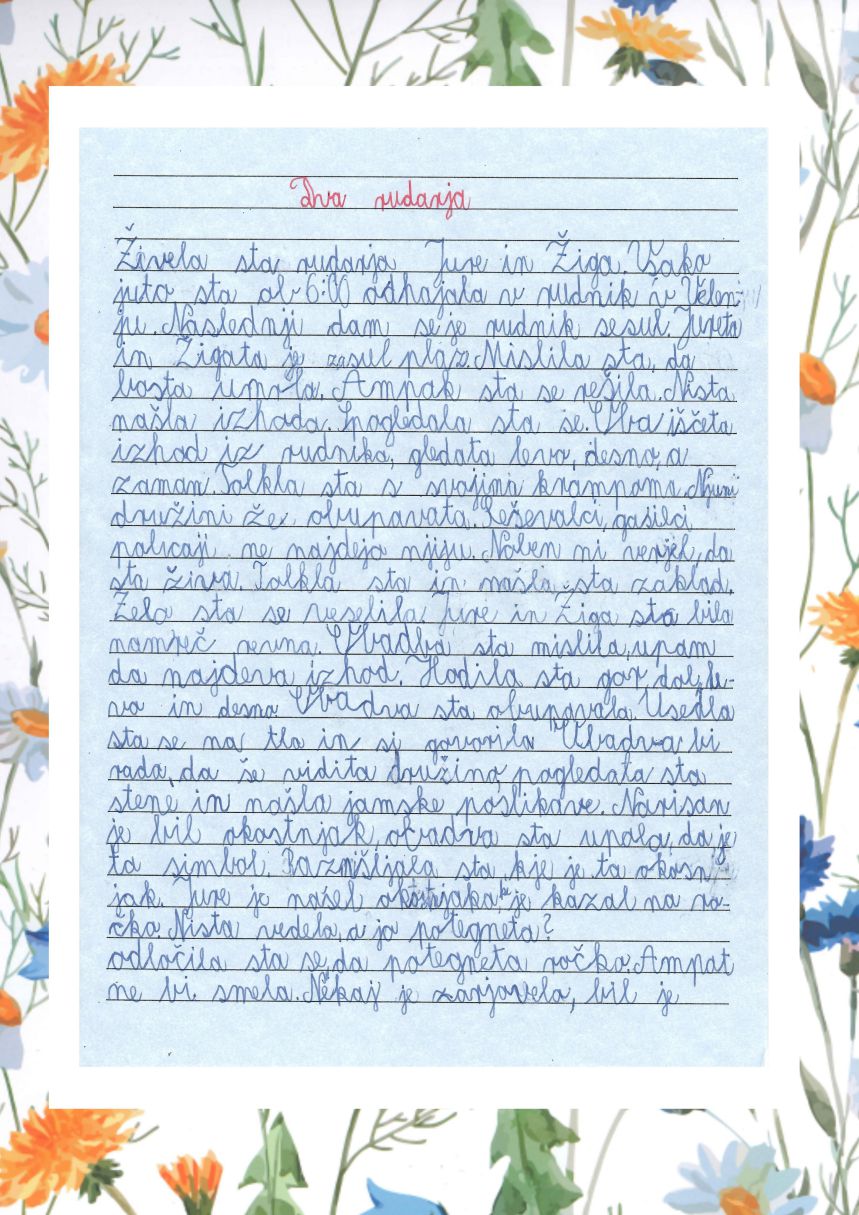 Dva rudarja
Živela sta rudarja Jure in Žiga. Vsako
juto sta ob 6:00 odhajala v rudnik v Velen-
ju. Naslednji dam se je rudnik sesul. Jureta
in Žigata je zasul plaz. Mislila sta, da
bosta umrla. Ampak sta se rešila. Nista
našla izhoda. Spogledala sta se. Oba iščeta
izhod iz rudnika, gledata levo, desno, a
zaman. Tolkla sta s svojimi krampoma. Njuni
družini že obupavata. Reševalci, gasilci
policaji ne najdejo njiju. Noben ni verjel, da
sta živa. Tolkla sta in našla sta zaklad.
Zelo sta se veselila. Jure in Žiga sta bila
namreč revna. Obadva sta mislila, upam
da najdeva izhod. Hodila sta gor, dol, le-
vo in desno. Obadva sta obupavala. Usedla
sta se na tla in si govorila Obadva bi
rada, da še vidita družino, pogledata sta
stene in našla jamske poslikave. Narisan
je bil okostnjak, obadva sta upala, da je
ta simbol. Razmišljala sta, kje je ta okosn
jak. Jure je našel okostnjaka, ki je kazal na ro-
čko. Nista vedela, a jo potegneta?
odločila sta se, da potegneta ročko. Ampat
ne bi smela. Nekaj je zarjovelo, bil je